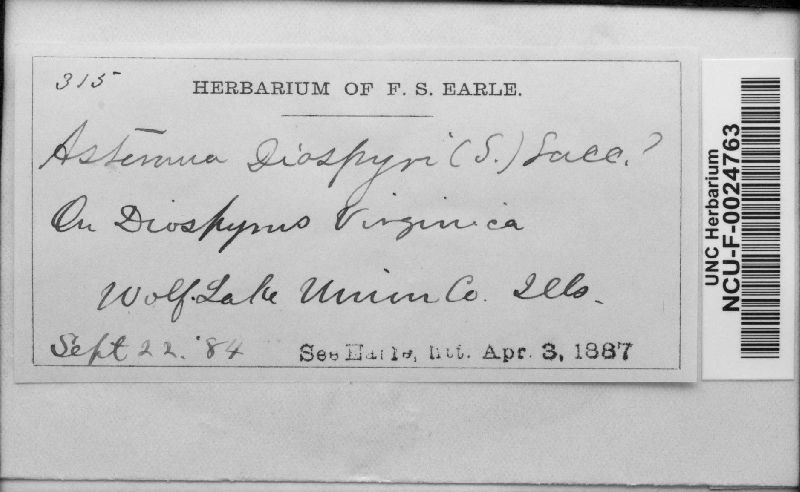 315
HERBARIUM OF F. S. EARLE.
Asterina Diospyri (S.) Sacc.?
On Diospyrus Virginica
Wolf Lake Union Co. Ills.
Sept 22. '84
See Earle, litt. Apr. 3, 1887
UNC Herbarium
NCU-F-0024763